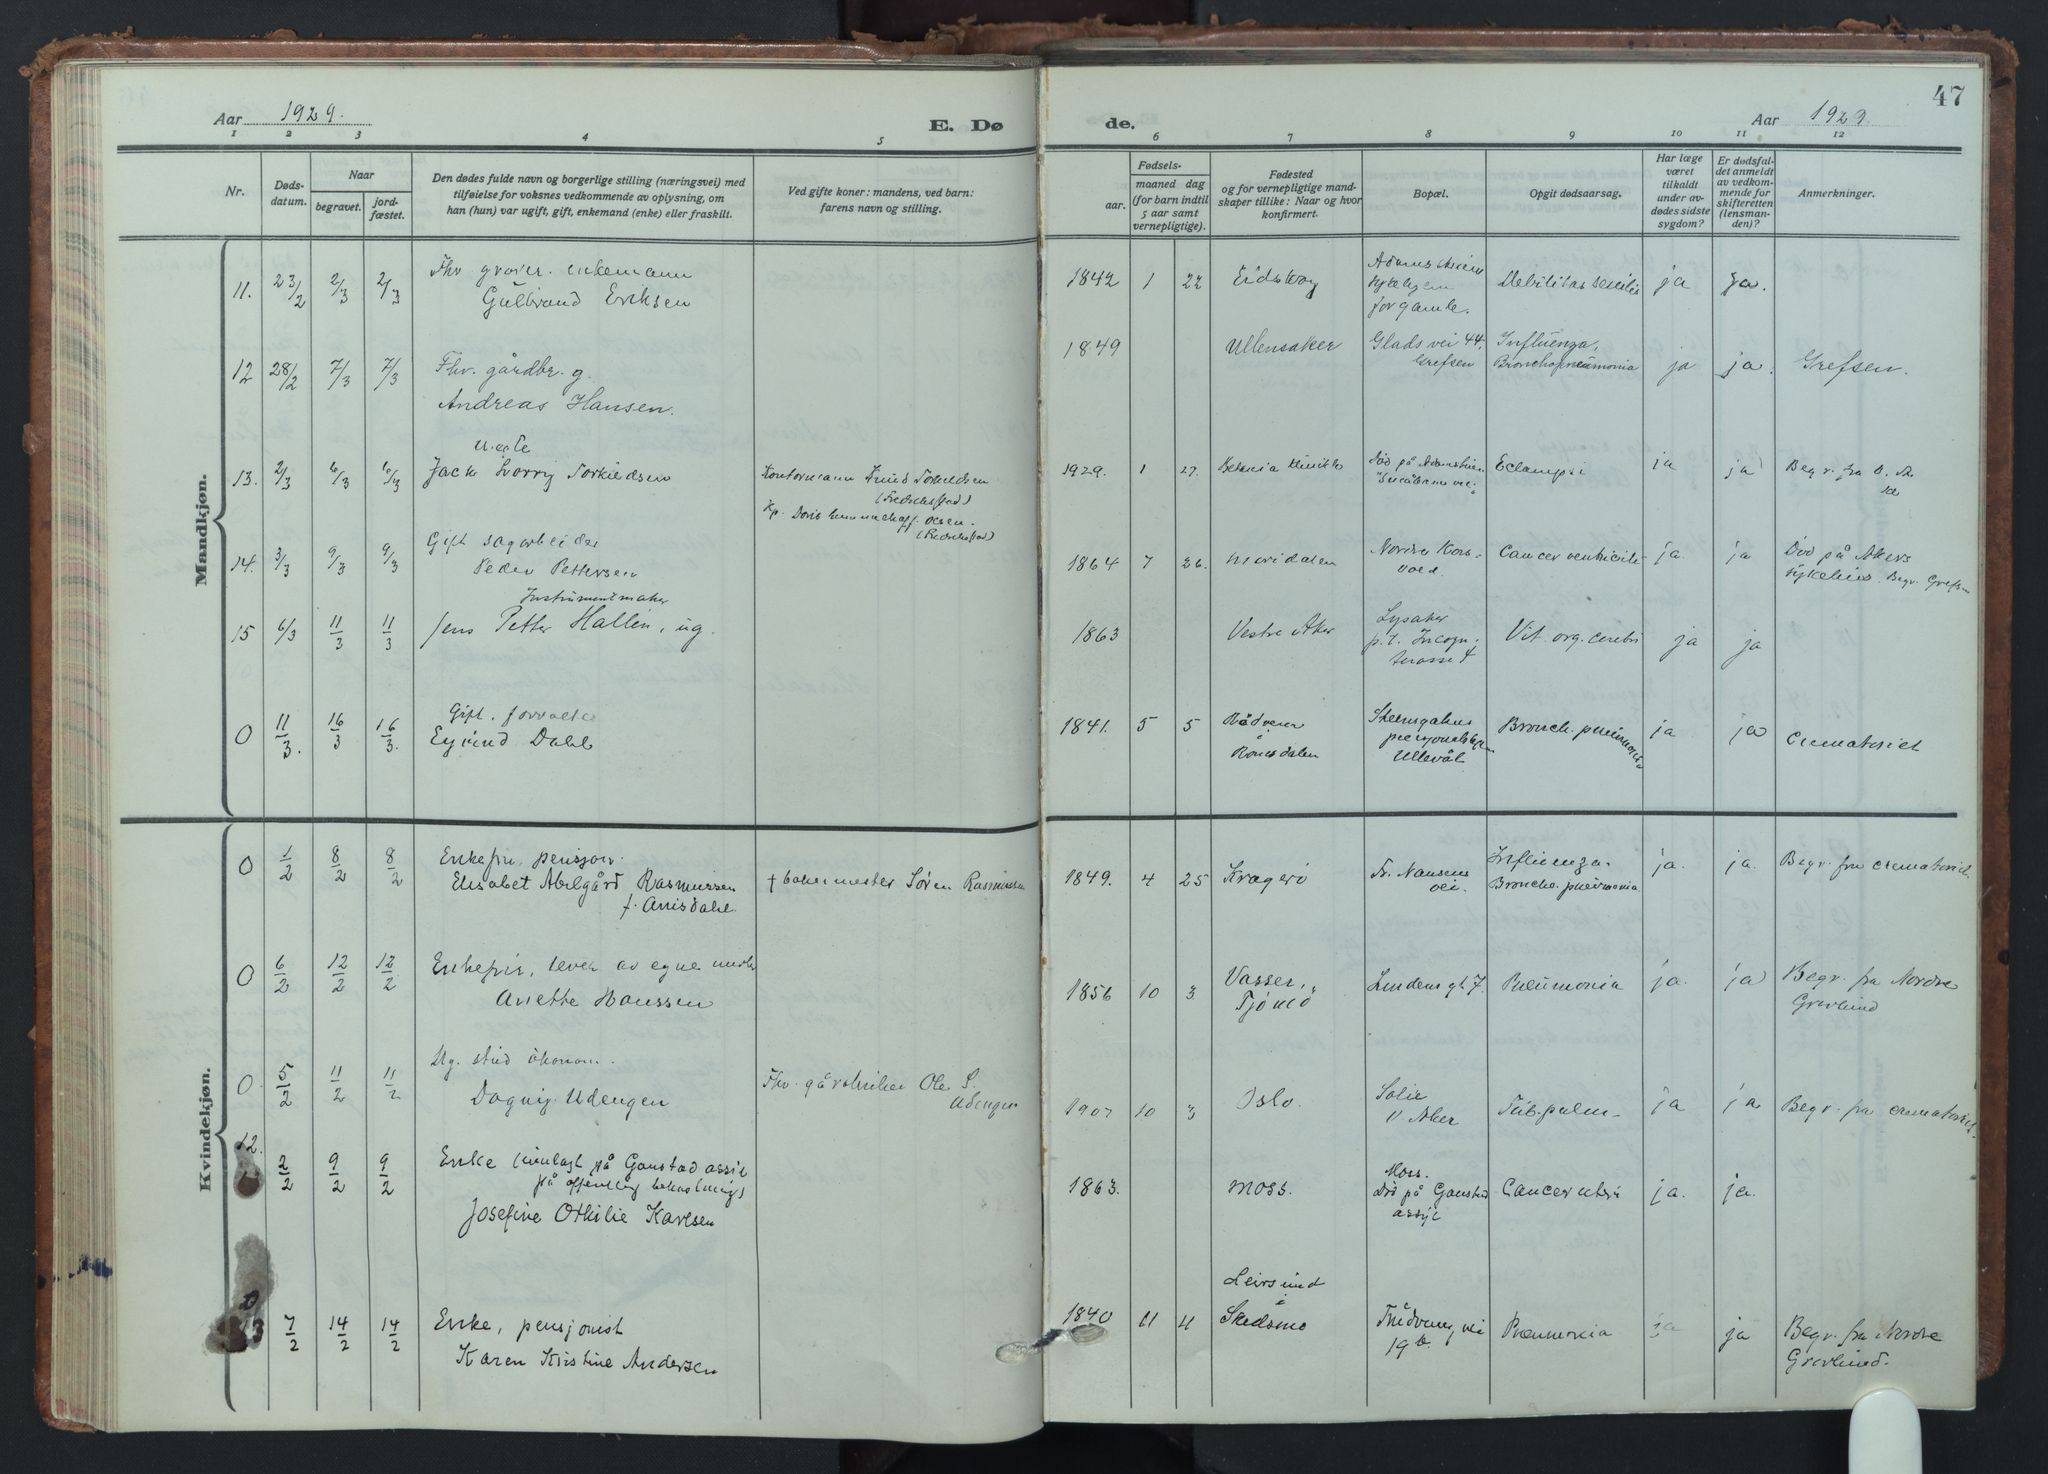 47
Aar 1929.
E. Dø
de.
Aar 1929.
1 2 3 4 5 6 7 8 9 10 11 12
Nr.
Døds-
datum.
Naar
begravet.
jord-
fæstet.
Den dødes fulde navn og borgerlige stilling (næringsvei) med
tilføielse for voksnes vedkommende av oplysning, om
han (hun) var ugift, gift, enkemand (enke) eller fraskilt.
Ved gifte koner: mandens, ved barn:
farens navn og stilling.
Fødsels-
aar.
maaned dag
(for barn indtil
5 aar samt
vernepligtige).
Fødested
og for vernepligtige mand-
skaper tillike: Naar og hvor
konfirmert.
Bopæl.
Opgit dødsaarsag.
Har læge
været
tilkaldt
under av-
dødes sidste
sygdom?
Er dødsfal-
det anmeldt
av vedkom-
mende for
skifteretten
(lensman-
den)?
Anmerkninger.
Mandkjøn.
11. 23/2 2/3 2/3 Fhv. enkemann
Gulbrand Eriksen
1842 1 22 Eidsvog
for gamle.
Debilitas senilis ja ja.
12 28/2 7/3 7/3 Fhv. gårdbr. g.
Andreas Hansen.
1849 Ullensaker Glads vei 44,
Grefsen
Influenza,
Bronchopneumonia ja ja. Grefsen.
13. 2/3 6/3 6/3
Jack Torkildsen
Kontormann Knud Torkildsen
(Fredrikstad)
Kp. Doris Olsen.
(Fredrikstad)
1929. 1 27. Eclampsi ja ja
14. 3/3 9/3 9/3 Gift sagarbeider
Peder Pettersen
1864 7 26. Maridalen Nordre
Cancer ventriculi ja ja Død på Akers
sykehus. Begr. Grefsen
15 6/3 11/3 11/3 Instrumentmaker
Jens Petter Hallin, ug.
1863 Vestre Aker Lysaker
p.t. Incogn.
terasse 4
Vit. org. cerebri ja ja
0 11/3. 16/3 16/3. Gift. forvalter
Eyvind Dahl
1841. 5 5
Romsdalen
Ullevål
Bronch. pneumonia ja ja Crematoriet
Kvindekjøn.
0 1/2 8/2 8/2 Enkefru, pensjon.
Elisabet Abelgård Rasmussen
f. Arnsdahl.
† bakermester Søren Rasmussen
1849. 4 25 Kragerø Fr. Nansens
vei.
Influenza.
Broncho. pneumonia. ja. ja. Begr. fra crematoriet.
0 6/2 12/2 12/2 Enkefru, lever av egne midler
Anette Hanssen
1856 10 3 Vasser,
Tjømø
Lindems gt 7. Pneumonia ja. ja Begr. fra Nordre
Gravlund
0. 5/2 11/2 11/2 Ug. stud økonom.
Dagny Udengen
Fhv. gårdbruker Ole S.
Udengen
1907 10 3 Oslo.
V Aker
Tub. pulm. ja ja Begr. fra crematoriet.
12. 2/2 9/2 9/2 Enke innlagt på Gaustad asyl
på offentlig bekostning)
Josefine Othilie Karlsen
1863. Moss. Moss.
Død på Gaustad
asyl
Cancer uteri ja. ja.
13 7/2 14/2 14/2 Enke, pensjonist
Karen Kristine Andersen
1840 11 4 Leirsund
i
Skedsmo
19 b.
Pneumonia ja ja Begr. fra Nordre
Gravlund.